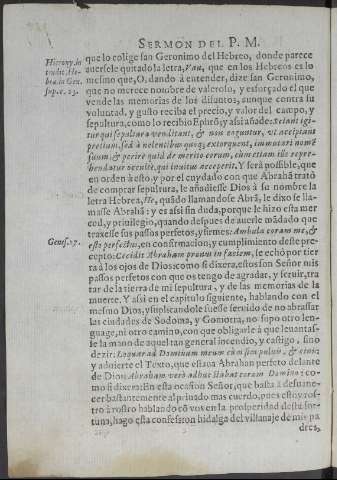 SERMON DEL P. M.
Hierony. in
tradit. He-
bra. in Gen.
sup. c. 23.
que lo colige san Geronimo del Hebreo, donde parece
auersele quitado la letra, Vau, que en los Hebreos es lo
mesmo que, O, dando à entender, dize san Geronimo,
que no merece nombre de valeroso, y esforçado el que
vende las memorias de sus difuntos, aunque contra su
voluntad, y gusto reciba el precio, y valor del campo, y
sepultura, como lo recibio Ephrõ y assi añade: Sciant igi-
tur qui sepultura venditant, & non coguntur, vt accipiant
pretium, sed à nolentibus quoq; extorquent, immutari nomẽ
suum, & perire quid de merito eorum, cum etiam ille repre-
hendatur occultè, qui inuitus acceperit. Y serà possible, que
en orden à esto, y por el cuydado con que Abrahã tratò
de comprar sepultura, le añadiesse Dios à su nombre la
letra Hebrea, He, quãdo llamandose Abrã, le dixo se lla-
masse Abrahã: y es assi sin duda, porque le hizo esta mer
ced, y priuilegio, quando despues de auerle mãdado que
traxesse sus passos perfetos, y firmes: Ambula coram me, &
Genes. 17.
esto perfectus, en confirmacion, y cumplimiento deste pre-
cepto: Cecidit Abraham pronus in faciem, se echò por tier
ra à los ojos de Dios: como si dixera, estos son Señor mis
passos perfetos con que os tengo de agradar, y seruir, tra
tar de la tierra de mi sepultura, y de las memorias de la
muerte. Y assi en el capitulo siguiente, hablando con el
mesmo Dios, y suplicandole fuesse seruido de no abrassar
las ciudades de Sodoma, y Gomorra, no supo otro len-
guage, ni otro camino, con que obligarle à que leuantas-
se la mano de aquel tan general incendio, y castigo, sino
dezir: Loquar ad Dominum meum cum sim puluis, & cinis;
y aduierte el Texto, que estaua Abrahan perfeto delante
de Dios: Abraham verò adhuc stabat coram Domino: co-
mo si dixera: En esta ocasion Señor, que basta à desuane-
cer bastantemente al priuado mas cuerdo, pues estoy ros-
tro à rostro hablando cõ vos en la prosperidad desta for-
tuna, hago esta confession hidalga del villanaje de mis pa
dres,